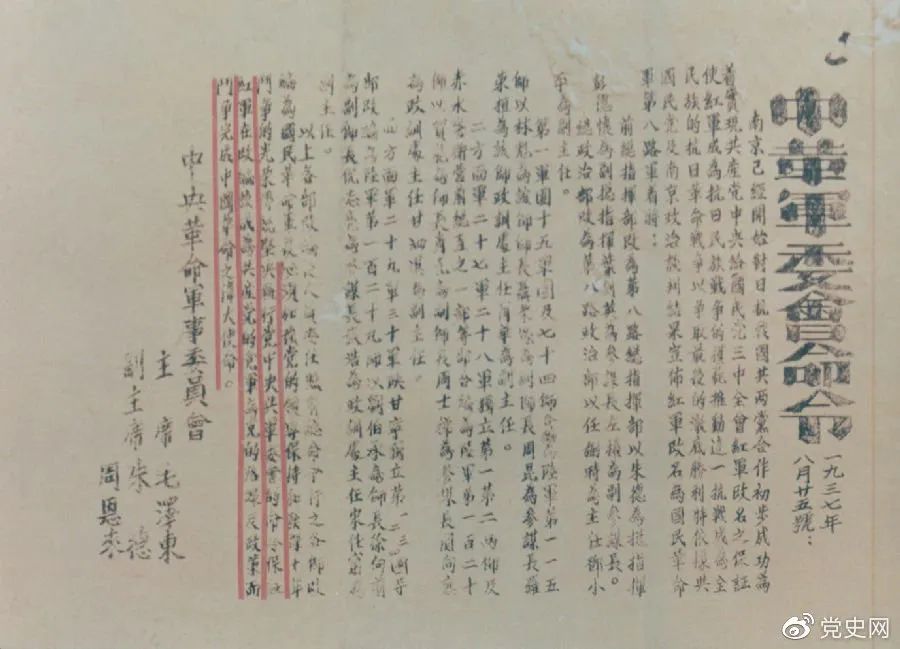 中華軍委會命令
一九三七年
八月廿五號：
南京已經開始對日抗戰國共兩黨合作初步成功為
着實現共產黨中央給國民党三中全會紅軍改名之保証
使紅軍成為抗日民族戰爭的模範推動這一抗戰成為全
民族的抗日革命戰爭以爭取最後的澈底勝利特依據共
國民党及南京政治談判結果宣佈紅軍改名為國民革命
軍第八路軍着將：
前總指揮部改為第八路總指揮部以朱德為總指揮
彭德懷為副總指揮葉劍英為參謀長左權為副參謀長。
總政治部改為第八路政治部以任弼時為主任鄧小
平為副主任。
第一軍團十五軍團及七十四師合編為陸軍第一一五
師以林彪為該師師長聶榮臻為副師長周昆為參謀長羅
榮桓為該師政訓處主任蕭華為副主任。
二方面軍二十七軍二十八軍獨立第一第二兩師及
赤水警衛營前總直之一部等部合編為陸軍第一百二十
師以賀龍為師長蕭克為副師長周士第為參謀長關向應
為政訓處主任甘泗淇為副主任。
四方面軍二十九軍三十軍陝甘寧獨立第一二三四等
部改編為陸軍第一百二十九師以劉伯承為師長徐向前
為副師長倪志亮為參謀長張浩為政訓處主任宋任窮為
副主任。
以上各部改編
編為國民革命軍後必須加強黨的領導保持和發揮十年
鬥爭的光榮傳統堅決執行黨中央與軍委會的命令保証
紅軍在改編後成為共產党的党軍為党的路線及政策而
鬥爭完成中國革命之偉大使命。
中央革命軍事委員會
主席毛澤東
副主席朱德
周恩來
党史网